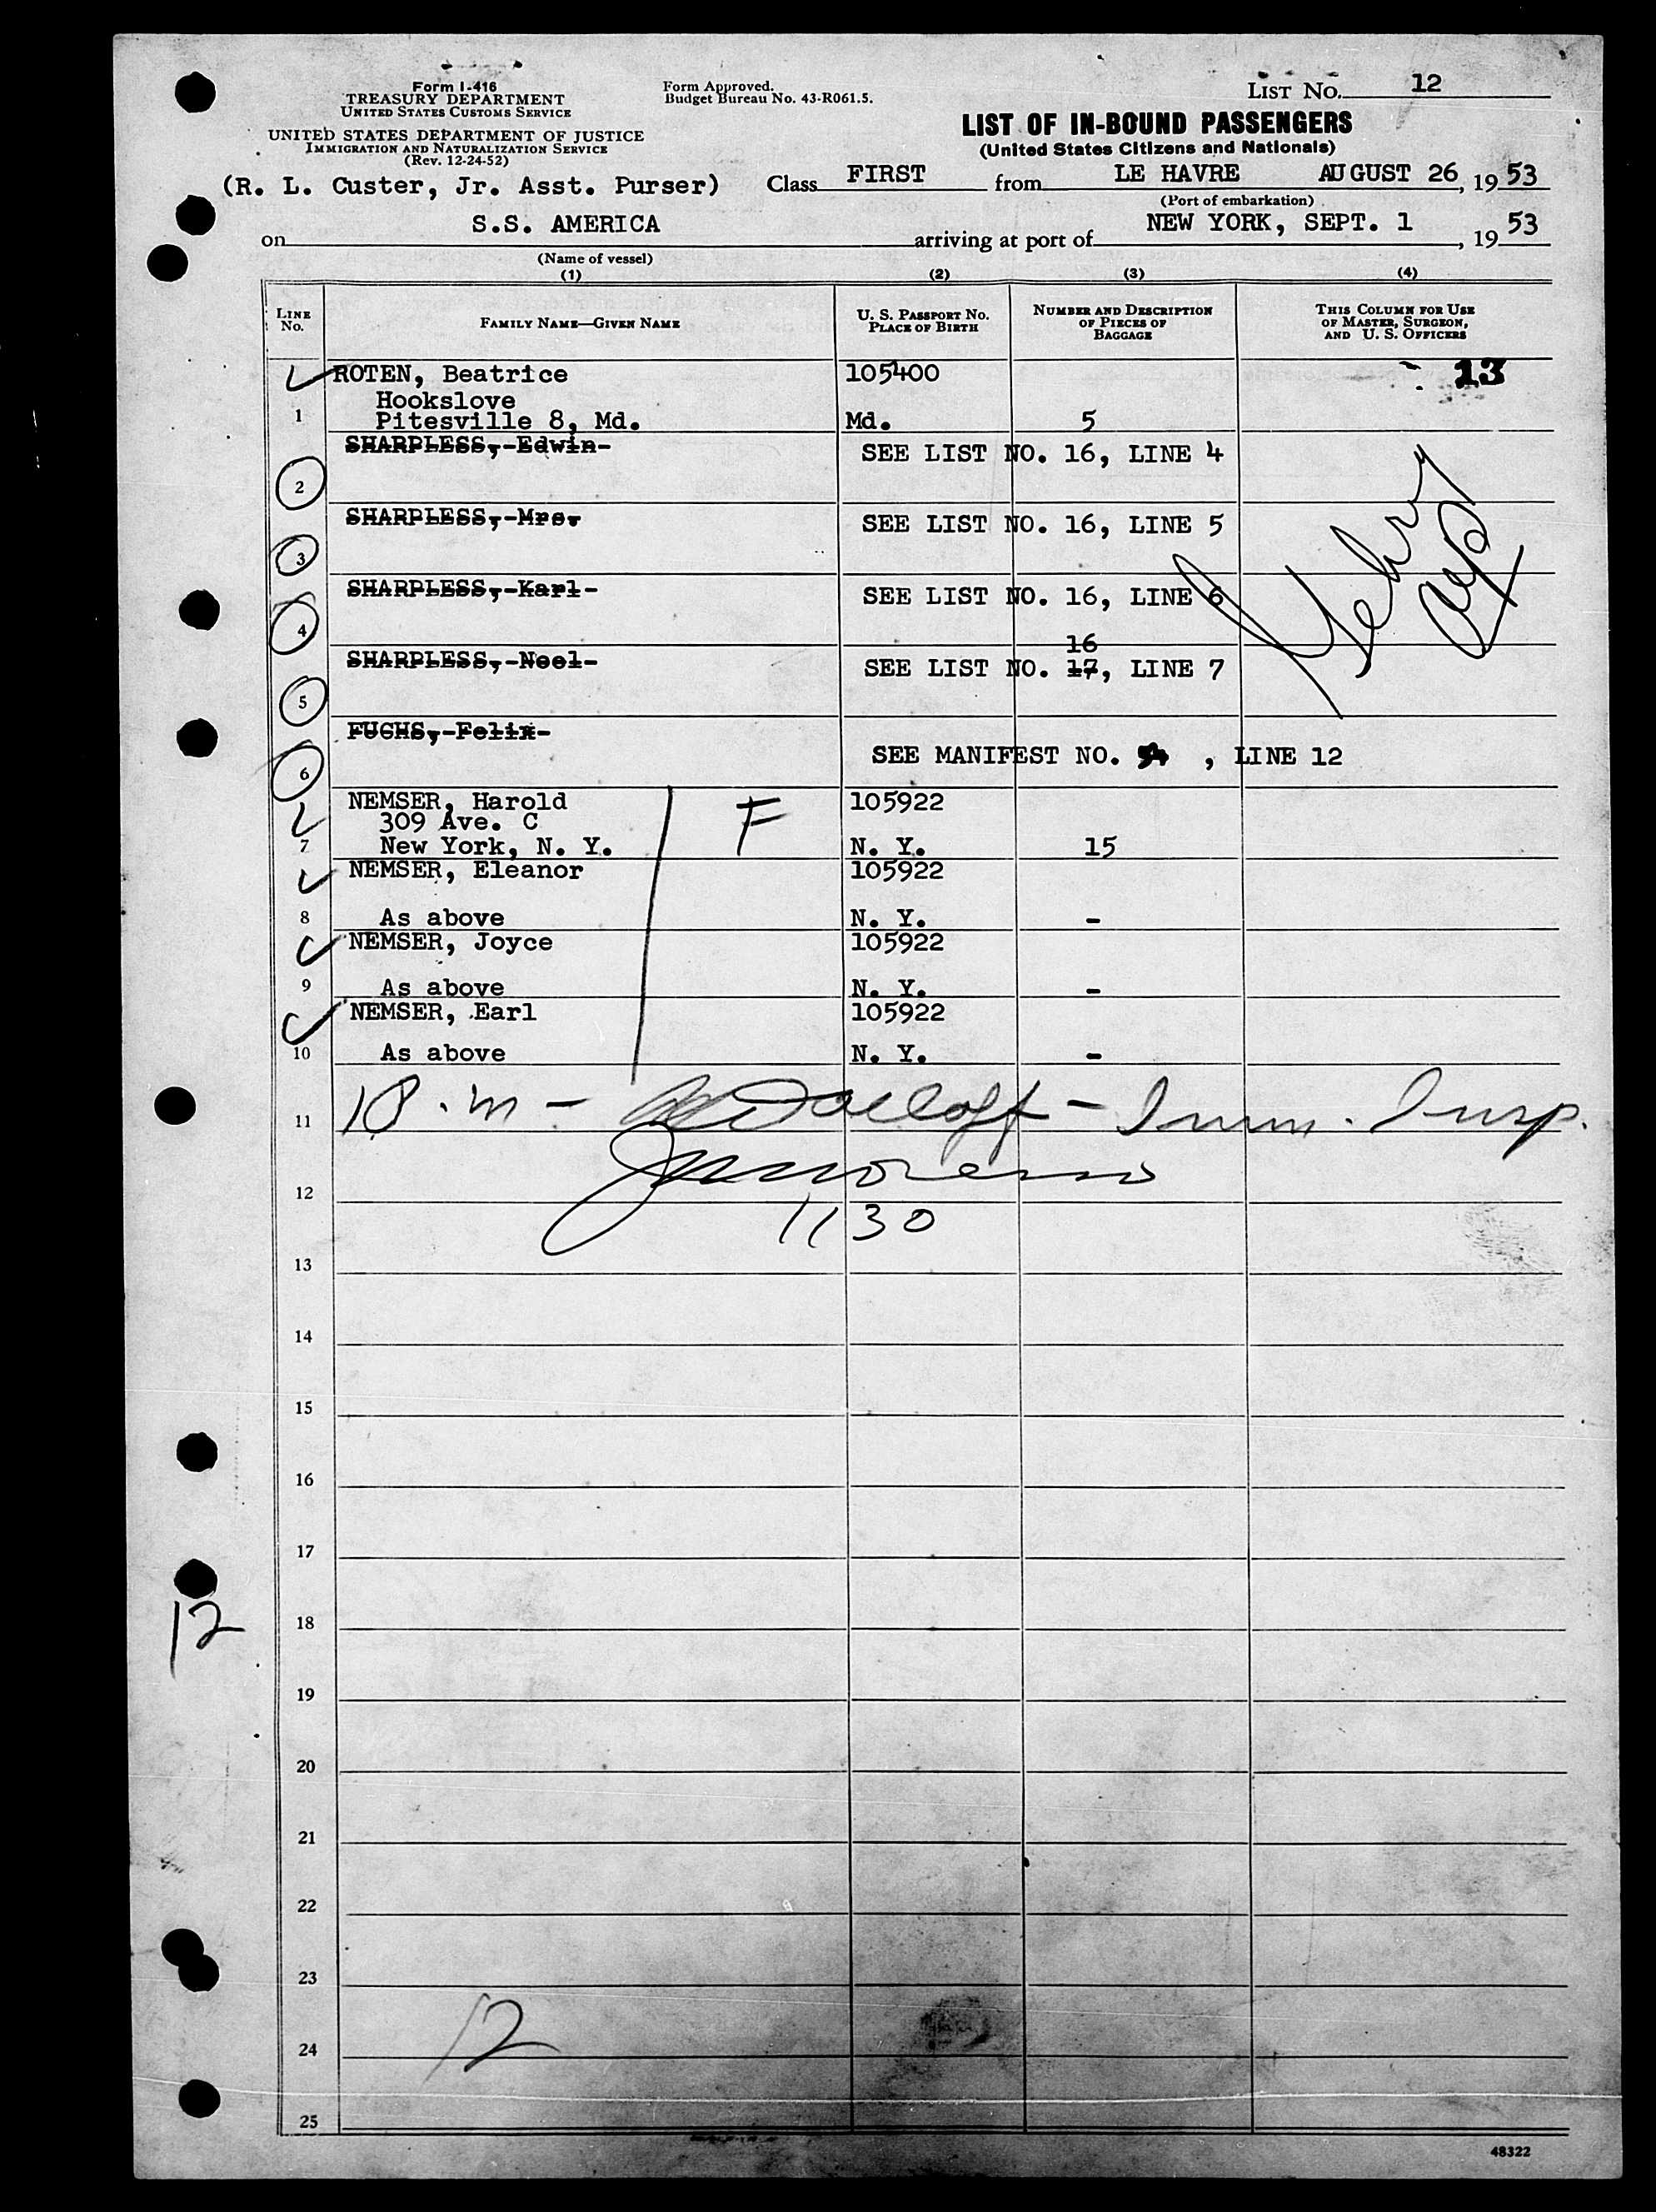 Form I-416
TREASURY DEPARTMENT
UNITED STATES CUSTOMS SERVICE
UNITED STATES DEPARTMENT OF JUSTICE
IMMIGRATION AND NATURALIZATION SERVICE
(Rev. 12-24-52)
Form Approved.
Budget Bureau No. 43-R061.5.
LIST NO. 12
LIST OF IN-BOUND PASSENGERS
(United States Citizens and Nationals)
(R. L. Custer, Jr. Asst. Purser) Class FIRST from LE HAVRE AUGUST 26, 1953
(Port of embarkation)
on S.S. AMERICA arriving at port of NEW YORK, SEPT. 1, 1953
(Name of vessel)
(1) (2) (3) (4)
LINE No. FAMILY NAME—GIVEN NAME U. S. PASSPORT NO. PLACE OF BIRTH NUMBER AND DESCRIPTION OF PIECES OF BAGGAGE THIS COLUMN FOR USE OF MASTER, SURGEON, AND U. S. OFFICERS
ROTEN, Beatrice 105400 13
Hookslove
1 Pitesville 8, Md. Md. 5
SHARPLESS, Edwin SEE LIST NO. 16, LINE 4
2
SHARPLESS, Mrs. SEE LIST NO. 16, LINE 5
3
SHARPLESS, Karl SEE LIST NO. 16, LINE 6
4
16
SHARPLESS, Noel SEE LIST NO. 17, LINE 7
5
FUCHS, Felix
SEE MANIFEST NO. , LINE 12
6
NEMSER, Harold F 105922
309 Ave. C
7 New York, N. Y. N. Y. 15
NEMSER, Eleanor 105922
8 As above N. Y. -
NEMSER, Joyce 105922
9 As above N. Y. -
NEMSER, Earl 105922
10 As above N. Y. -
11 Imm. Insp.
12
1130
13
14
15
16
17
12
18
19
20
21
22
23
12
24
25
48322